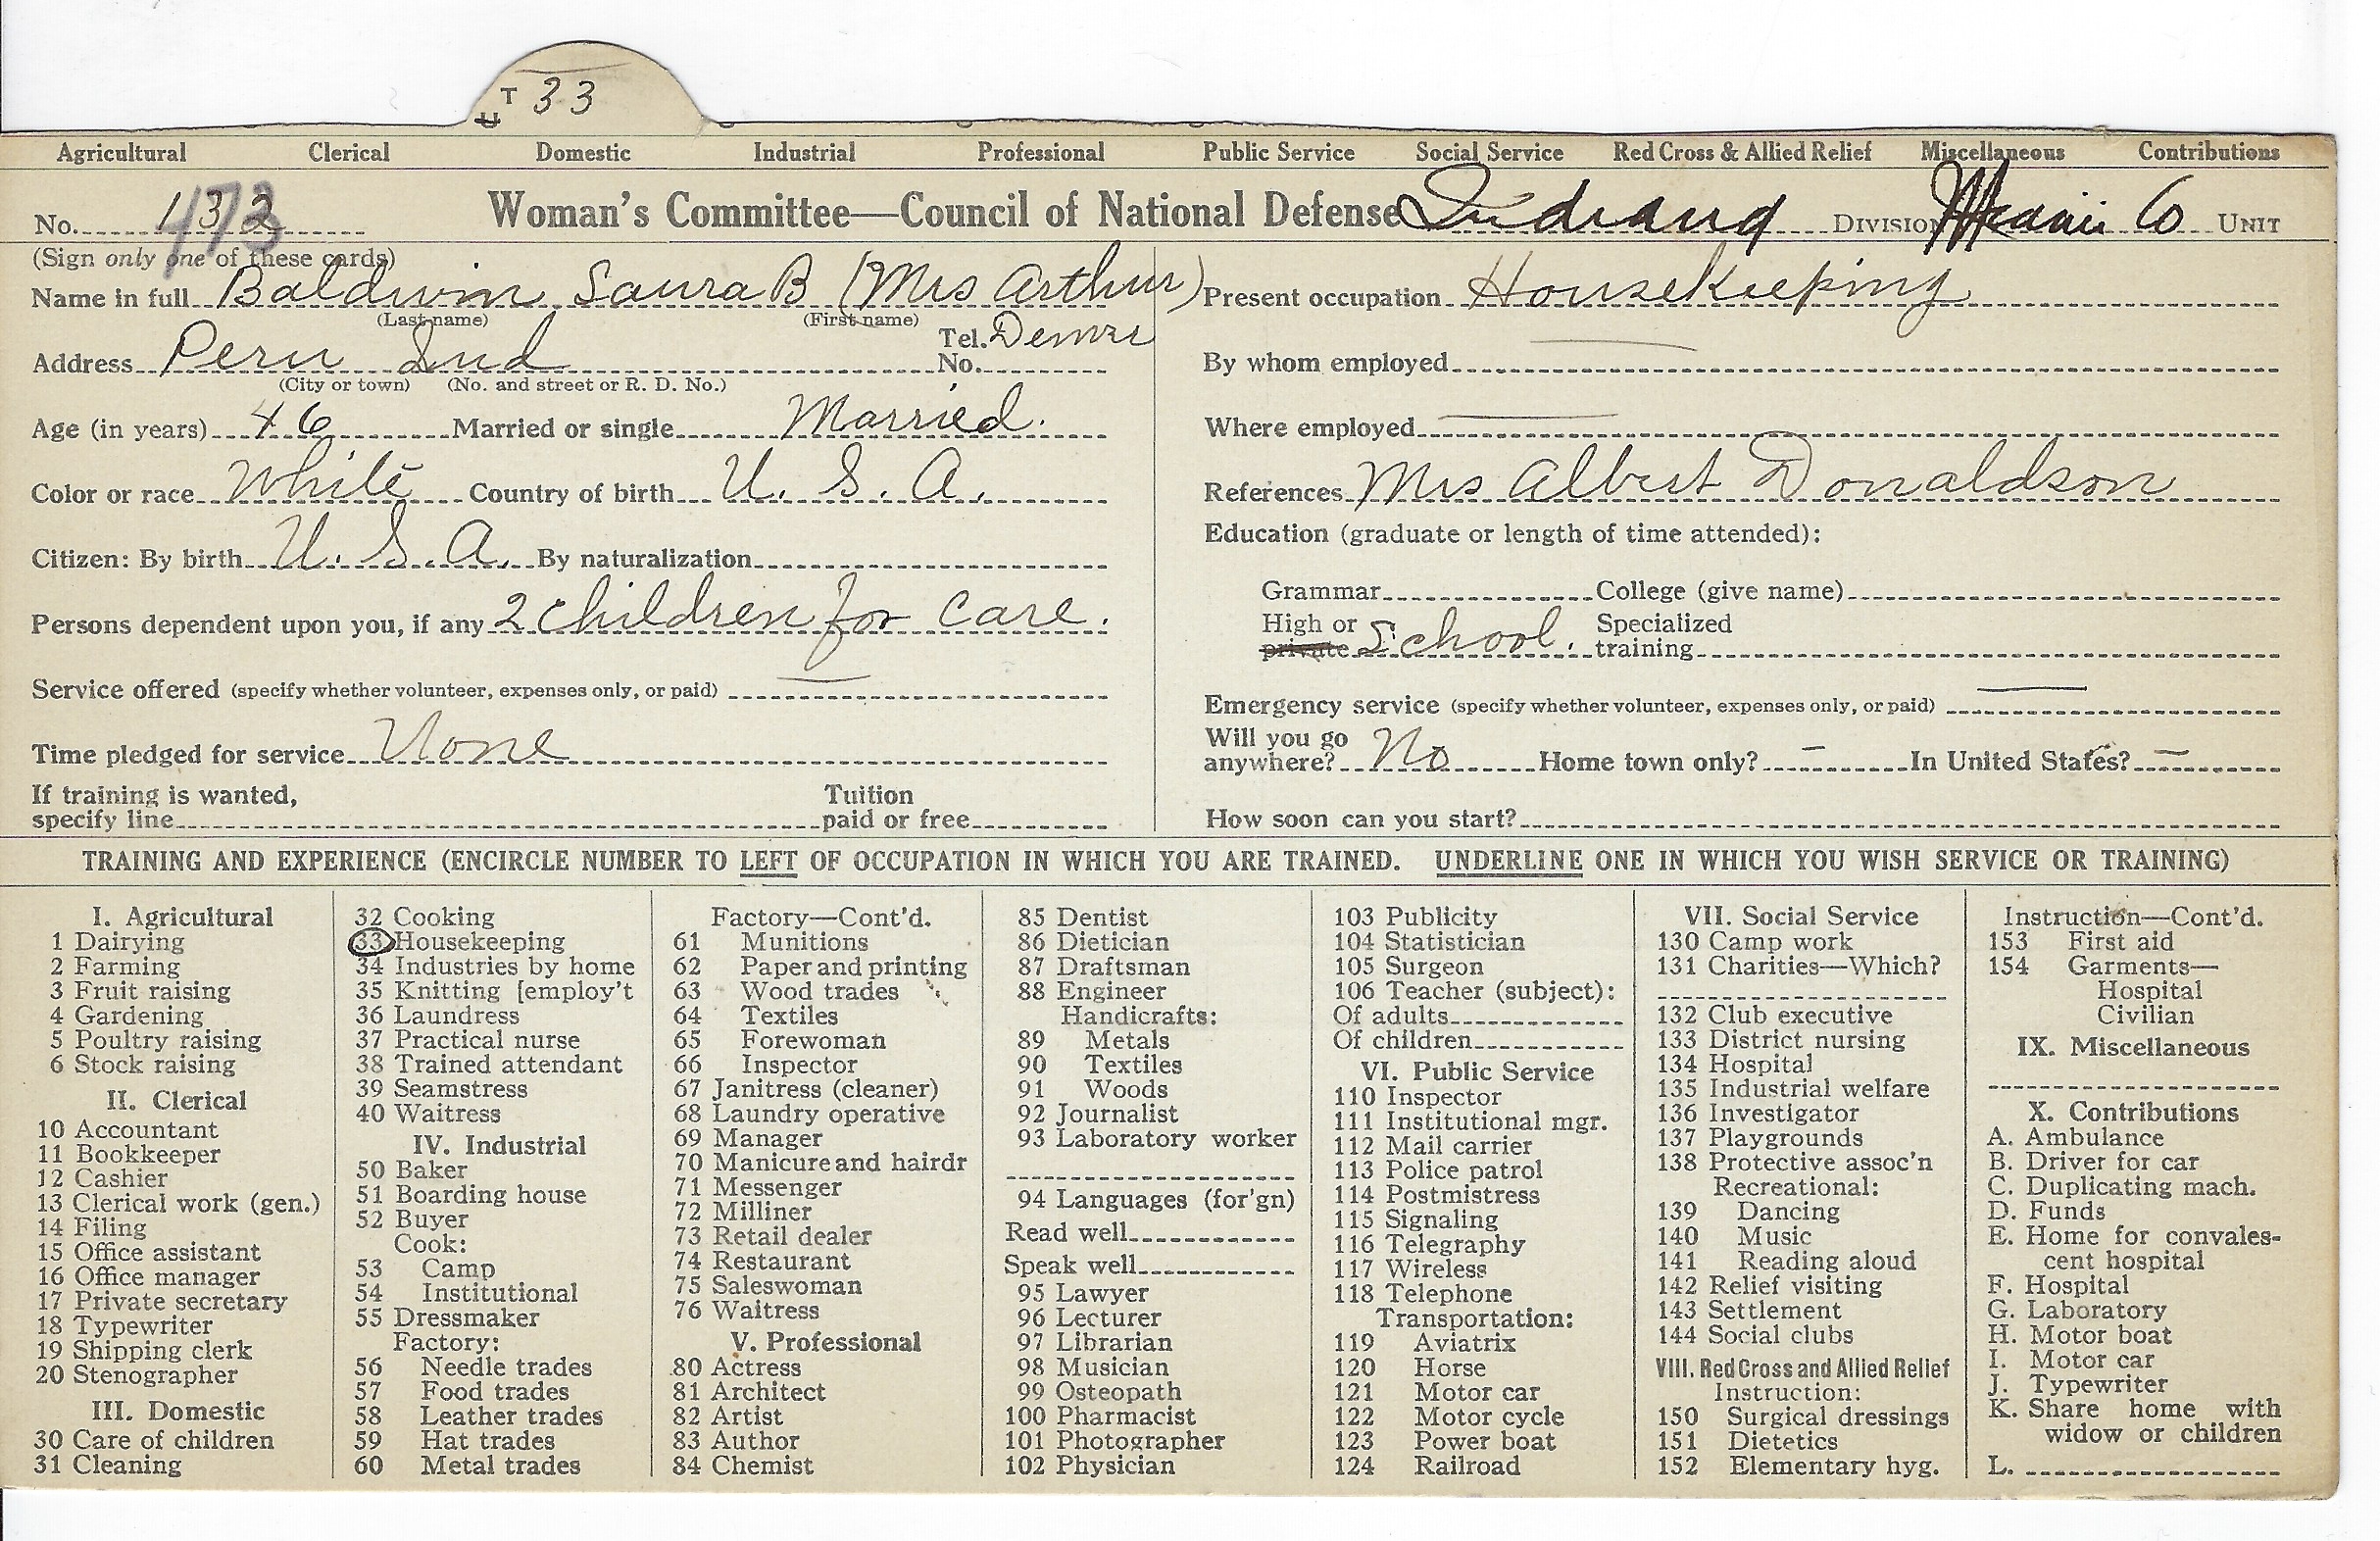 T 33
Agricultural Clerical Domestic Industrial Professional Public Service Social Service Red Cross & Allied Relief Miscellaneous Contributions
No. 132 473 Woman's Committee—Council of National Defense Indiana DIVISION Miami Co UNIT
(Sign only one of these cards)
Name in full Baldwin Laura B (Mrs Arthur)
(Last name) (First name)
Address Peru Ind Tel. No.
(City or town) (No. and street or R. D. No.)
Age (in years) 46 Married or single Married.
Color or race White Country of birth U. S. A.
Citizen: By birth U. S. A. By naturalization
Persons dependent upon you, if any 2 children for care.
Service offered (specify whether volunteer, expenses only, or paid) —
Time pledged for service None
If training is wanted, specify line Tuition paid or free
Present occupation Housekeeping
By whom employed —
Where employed —
References Mrs Albert Donaldson
Education (graduate or length of time attended):
Grammar College (give name)
High or private School. Specialized training
Emergency service (specify whether volunteer, expenses only, or paid) —
Will you go anywhere? No Home town only? — In United States? —
How soon can you start?
TRAINING AND EXPERIENCE (ENCIRCLE NUMBER TO LEFT OF OCCUPATION IN WHICH YOU ARE TRAINED. UNDERLINE ONE IN WHICH YOU WISH SERVICE OR TRAINING)
I. Agricultural
1 Dairying
2 Farming
3 Fruit raising
4 Gardening
5 Poultry raising
6 Stock raising
II. Clerical
10 Accountant
11 Bookkeeper
12 Cashier
13 Clerical work (gen.)
14 Filing
15 Office assistant
16 Office manager
17 Private secretary
18 Typewriter
19 Shipping clerk
20 Stenographer
III. Domestic
30 Care of children
31 Cleaning
32 Cooking
33 Housekeeping
34 Industries by home
35 Knitting [employ't
36 Laundress
37 Practical nurse
38 Trained attendant
39 Seamstress
40 Waitress
IV. Industrial
50 Baker
51 Boarding house
52 Buyer
Cook:
53 Camp
54 Institutional
55 Dressmaker
Factory:
56 Needle trades
57 Food trades
58 Leather trades
59 Hat trades
60 Metal trades
Factory—Cont'd.
61 Munitions
62 Paper and printing
63 Wood trades
64 Textiles
65 Forewoman
66 Inspector
67 Janitress (cleaner)
68 Laundry operative
69 Manager
70 Manicure and hairdr
71 Messenger
72 Milliner
73 Retail dealer
74 Restaurant
75 Saleswoman
76 Waitress
V. Professional
80 Actress
81 Architect
82 Artist
83 Author
84 Chemist
85 Dentist
86 Dietician
87 Draftsman
88 Engineer
Handicrafts:
89 Metals
90 Textiles
91 Woods
92 Journalist
93 Laboratory worker
94 Languages (for'gn)
Read well
Speak well
95 Lawyer
96 Lecturer
97 Librarian
98 Musician
99 Osteopath
100 Pharmacist
101 Photographer
102 Physician
103 Publicity
104 Statistician
105 Surgeon
106 Teacher (subject):
Of adults
Of children
VI. Public Service
110 Inspector
111 Institutional mgr.
112 Mail carrier
113 Police patrol
114 Postmistress
115 Signaling
116 Telegraphy
117 Wireless
118 Telephone
Transportation:
119 Aviatrix
120 Horse
121 Motor car
122 Motor cycle
123 Power boat
124 Railroad
VII. Social Service
130 Camp work
131 Charities—Which?
132 Club executive
133 District nursing
134 Hospital
135 Industrial welfare
136 Investigator
137 Playgrounds
138 Protective assoc'n
Recreational:
139 Dancing
140 Music
141 Reading aloud
142 Relief visiting
143 Settlement
144 Social clubs
VIII. Red Cross and Allied Relief
Instruction:
150 Surgical dressings
151 Dietetics
152 Elementary hyg.
Instruction—Cont'd.
153 First aid
154 Garments—
Hospital
Civilian
IX. Miscellaneous
X. Contributions
A. Ambulance
B. Driver for car
C. Duplicating mach.
D. Funds
E. Home for convales-
cent hospital
F. Hospital
G. Laboratory
H. Motor boat
I. Motor car
J. Typewriter
K. Share home with
widow or children
L.